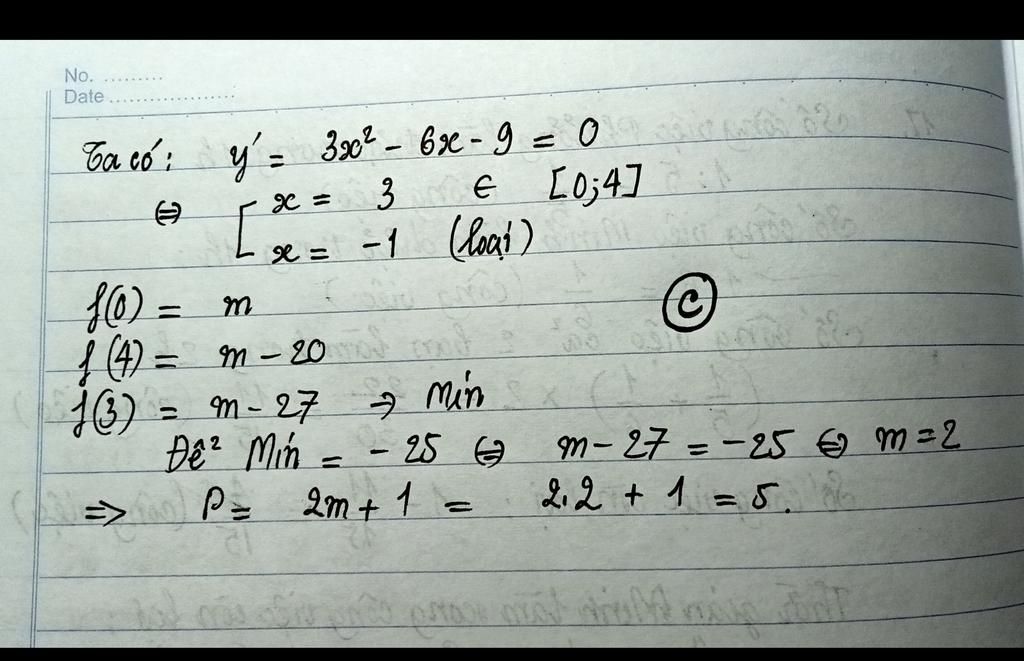 No. .........
Date ...................
Ta có: y' = 3x² - 6x - 9 = 0
⇔ [ x = 3 ∈ [0;4]
x = -1 (loại)
f(0) = m
Ⓒ
f(4) = m - 20
f(3) = m - 27 → Min
Để Min = -25 ⇔ m - 27 = -25 ⇔ m = 2
=> P = 2m + 1 = 2.2 + 1 = 5.